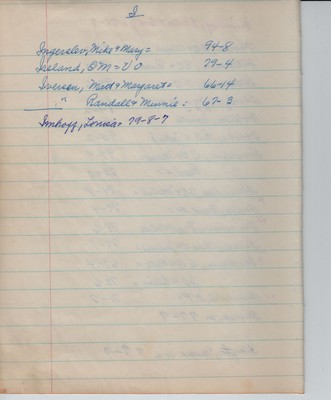 I
Ingerslev, Mike & Mary = 94-8
Iseland, OM = VO 79-4
Iverson, Mad & Margaret = 66-14
" Randall & Minnie = 67-3
Imhoff, Louisa = 79-8-7